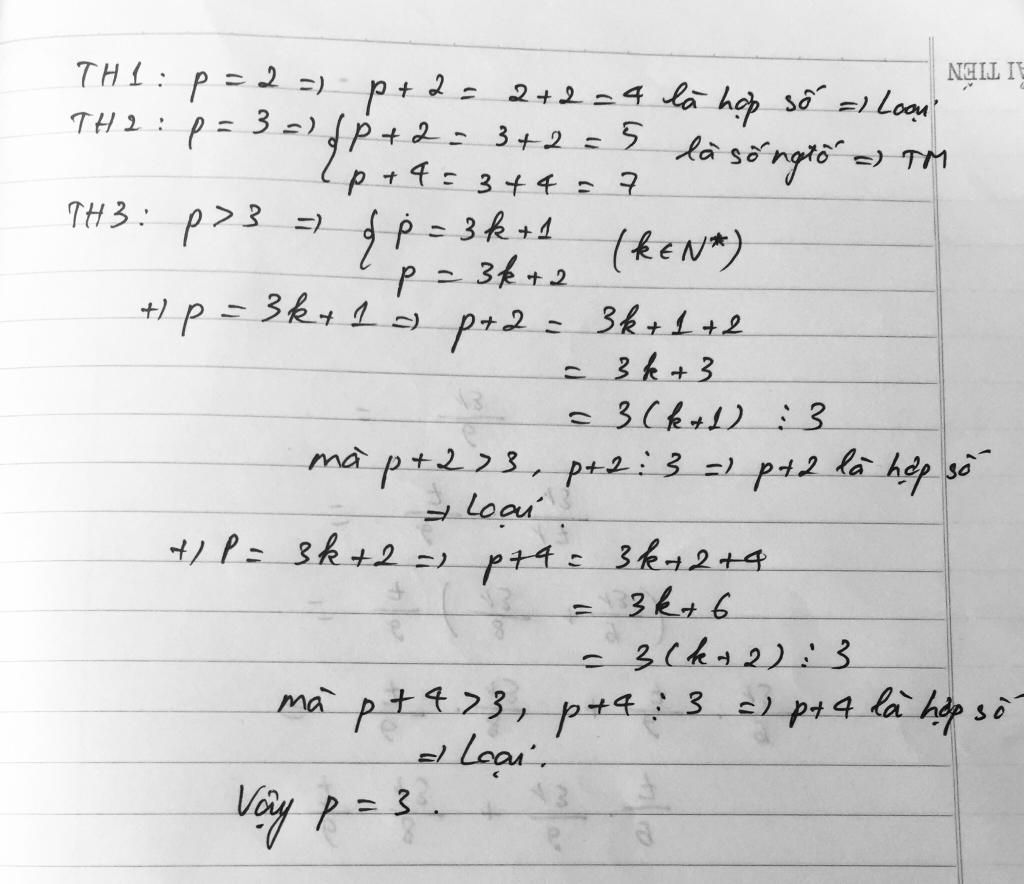 TH1: p = 2 => p + 2 = 2+2 = 4 là hợp số => Loại
TH2: p = 3 => { p + 2 = 3+2 = 5 là số ngtố => TM
p + 4 = 3 + 4 = 7
TH3: p > 3 => { p = 3k+1 (k ∈ N*)
p = 3k+2
+) p = 3k+1 => p+2 = 3k+1+2
= 3k+3
= 3(k+1) ⋮ 3
mà p+2 > 3, p+2 ⋮ 3 => p+2 là hợp số
=> Loại.
+) P = 3k+2 => p+4 = 3k+2+4
= 3k+6
= 3(k+2) ⋮ 3
mà p+4 > 3, p+4 ⋮ 3 => p+4 là hợp số
=> Loại.
Vậy p = 3.